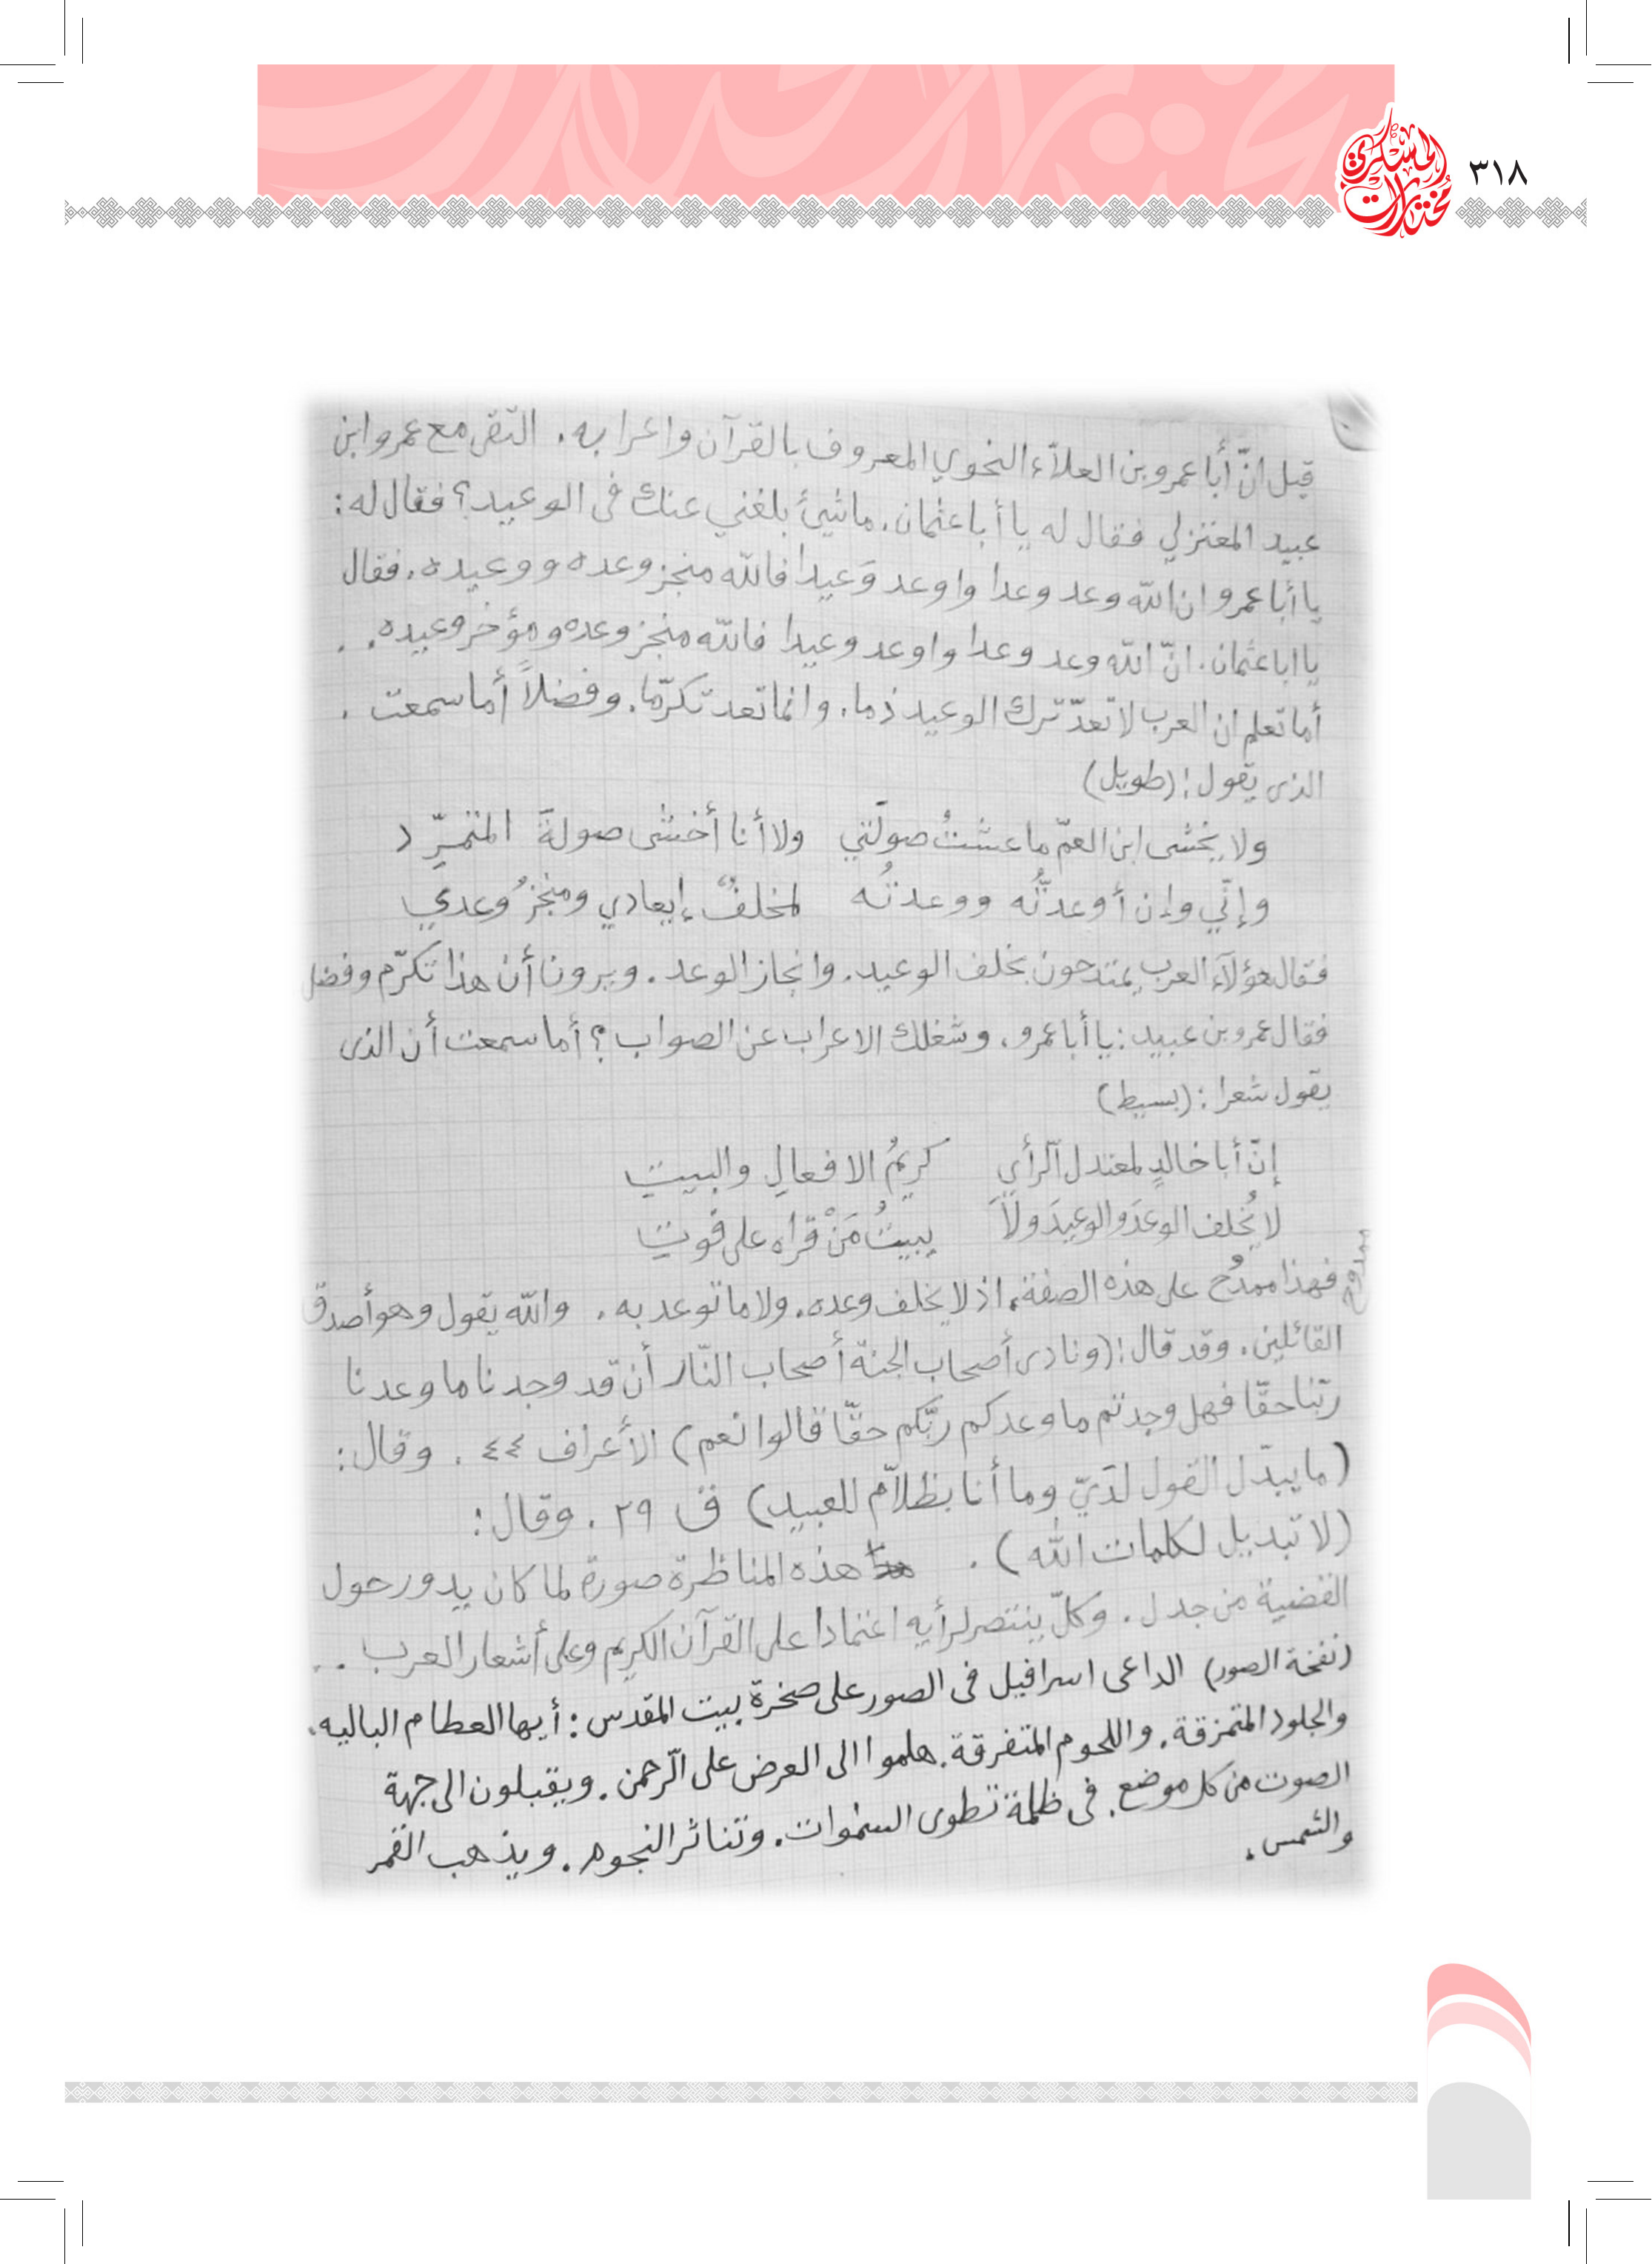 ٣١٨
مختارات الحسكري
قيل انّ أبا عمرو بن العلاّء النحوي المعروف بالقرآن واعرابه. التقى مع عمرو ابن
عبيد المعتزلي فقال له يا أباعثمان. ماشيئ بلغني عنك فى الوعيد؟ فقال له:
يا أبا عمرو ان الله وعد وعدا واوعد وَعيدا فالله منجز وعده ووعيده. فقال
يا اباعثمان. انّ الله وعد وعدا واوعد وعيدا فالله منجز وعده ومؤخر وعيده..
أما تعلم ان العرب لا تعدّ ترك الوعيد ذما. وانما تعد تكرّما. وفضلاً أما سمعت.
الذى يقول: (طويل)
ولا يخشى ابن العمّ ما عشتُ صولَتي ولا أنا أخشى صولةَ المتمرّد
وإنّي وإن أوعدتُّه ووعدتُه لمخلفٌ إيعادي ومنجزُ وعدي
فقال هؤلآء العرب يمتدحون بخلف الوعيد. وانجاز الوعد. ويرون أن هذا تكرّم وفضل
فقال عمرو بن عبيد: يا أبا عمرو. وشغلك الاعراب عن الصواب؟ أما سمعت أن الذى
يقول شعرا: (بسيط)
إنّ أبا خالدٍ لمعتدل آلرأي كريمُ الافعالِ والبيتِ
لا يُخلف الوعدَ والوعيدَ ولاَ يبيتُ مَنْ قراه على فوتِ
فهذا ممدُح على هذه الصفة، اذ لا يخلف وعده. ولا ما توعد به. والله يقول وهو أصدق
ممدوح
القائلين. وقد قال: (ونادى أصحاب الجنة أصحاب النّار أن قد وجدنا ما وعدنا
ربّنا حقّا فهل وجدتم ما وعدكم ربّكم حقّا قالوا نعم) الأعراف ٤٤. وقال:
(ما يبدّل القول لدَيّ وما أنا بظلاّم للعبيد) ق ٢٩. وقال:
(لا تبديل لكلمات الله). هذه المناظرة صورة لما كان يدور حول
القضية من جدل. وكلّ ينتصر لرأيه اعتمادا على القرآن الكريم وعلى أشعار العرب..
(نفخة الصور) الداعى اسرافيل فى الصور على صخرة بيت المقدس: أيها العظام الباليه.
والجلود المتمزقة. واللحوم المتفرقة. هلموا الى العرض على الرّحمن. ويقبلون الى جهة
الصوت من كل موضع. فى ظلمة تطوى السموات. وتناثر النجوم. ويذهب القمر
والشمس.